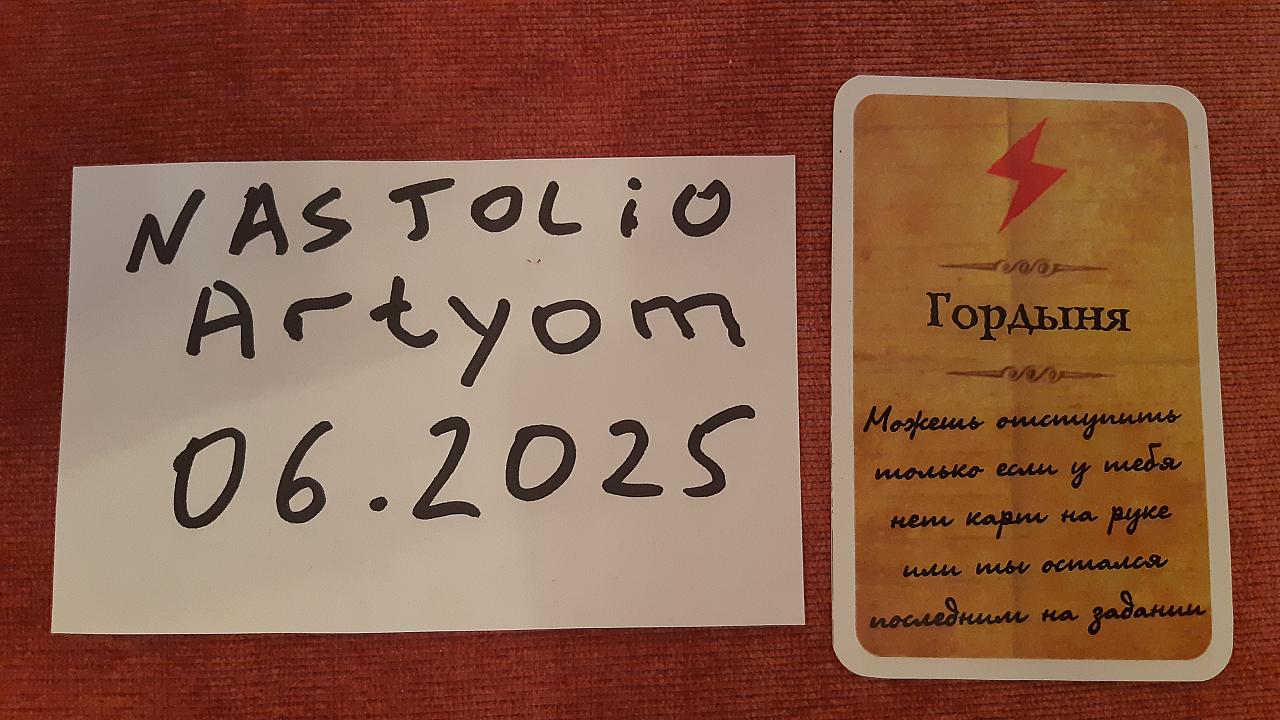 NASTOLiO
Artyom
06.2025
Гордыня
Можешь отступить
только если у тебя
нет карт на руке
или ты остался
последним на задании